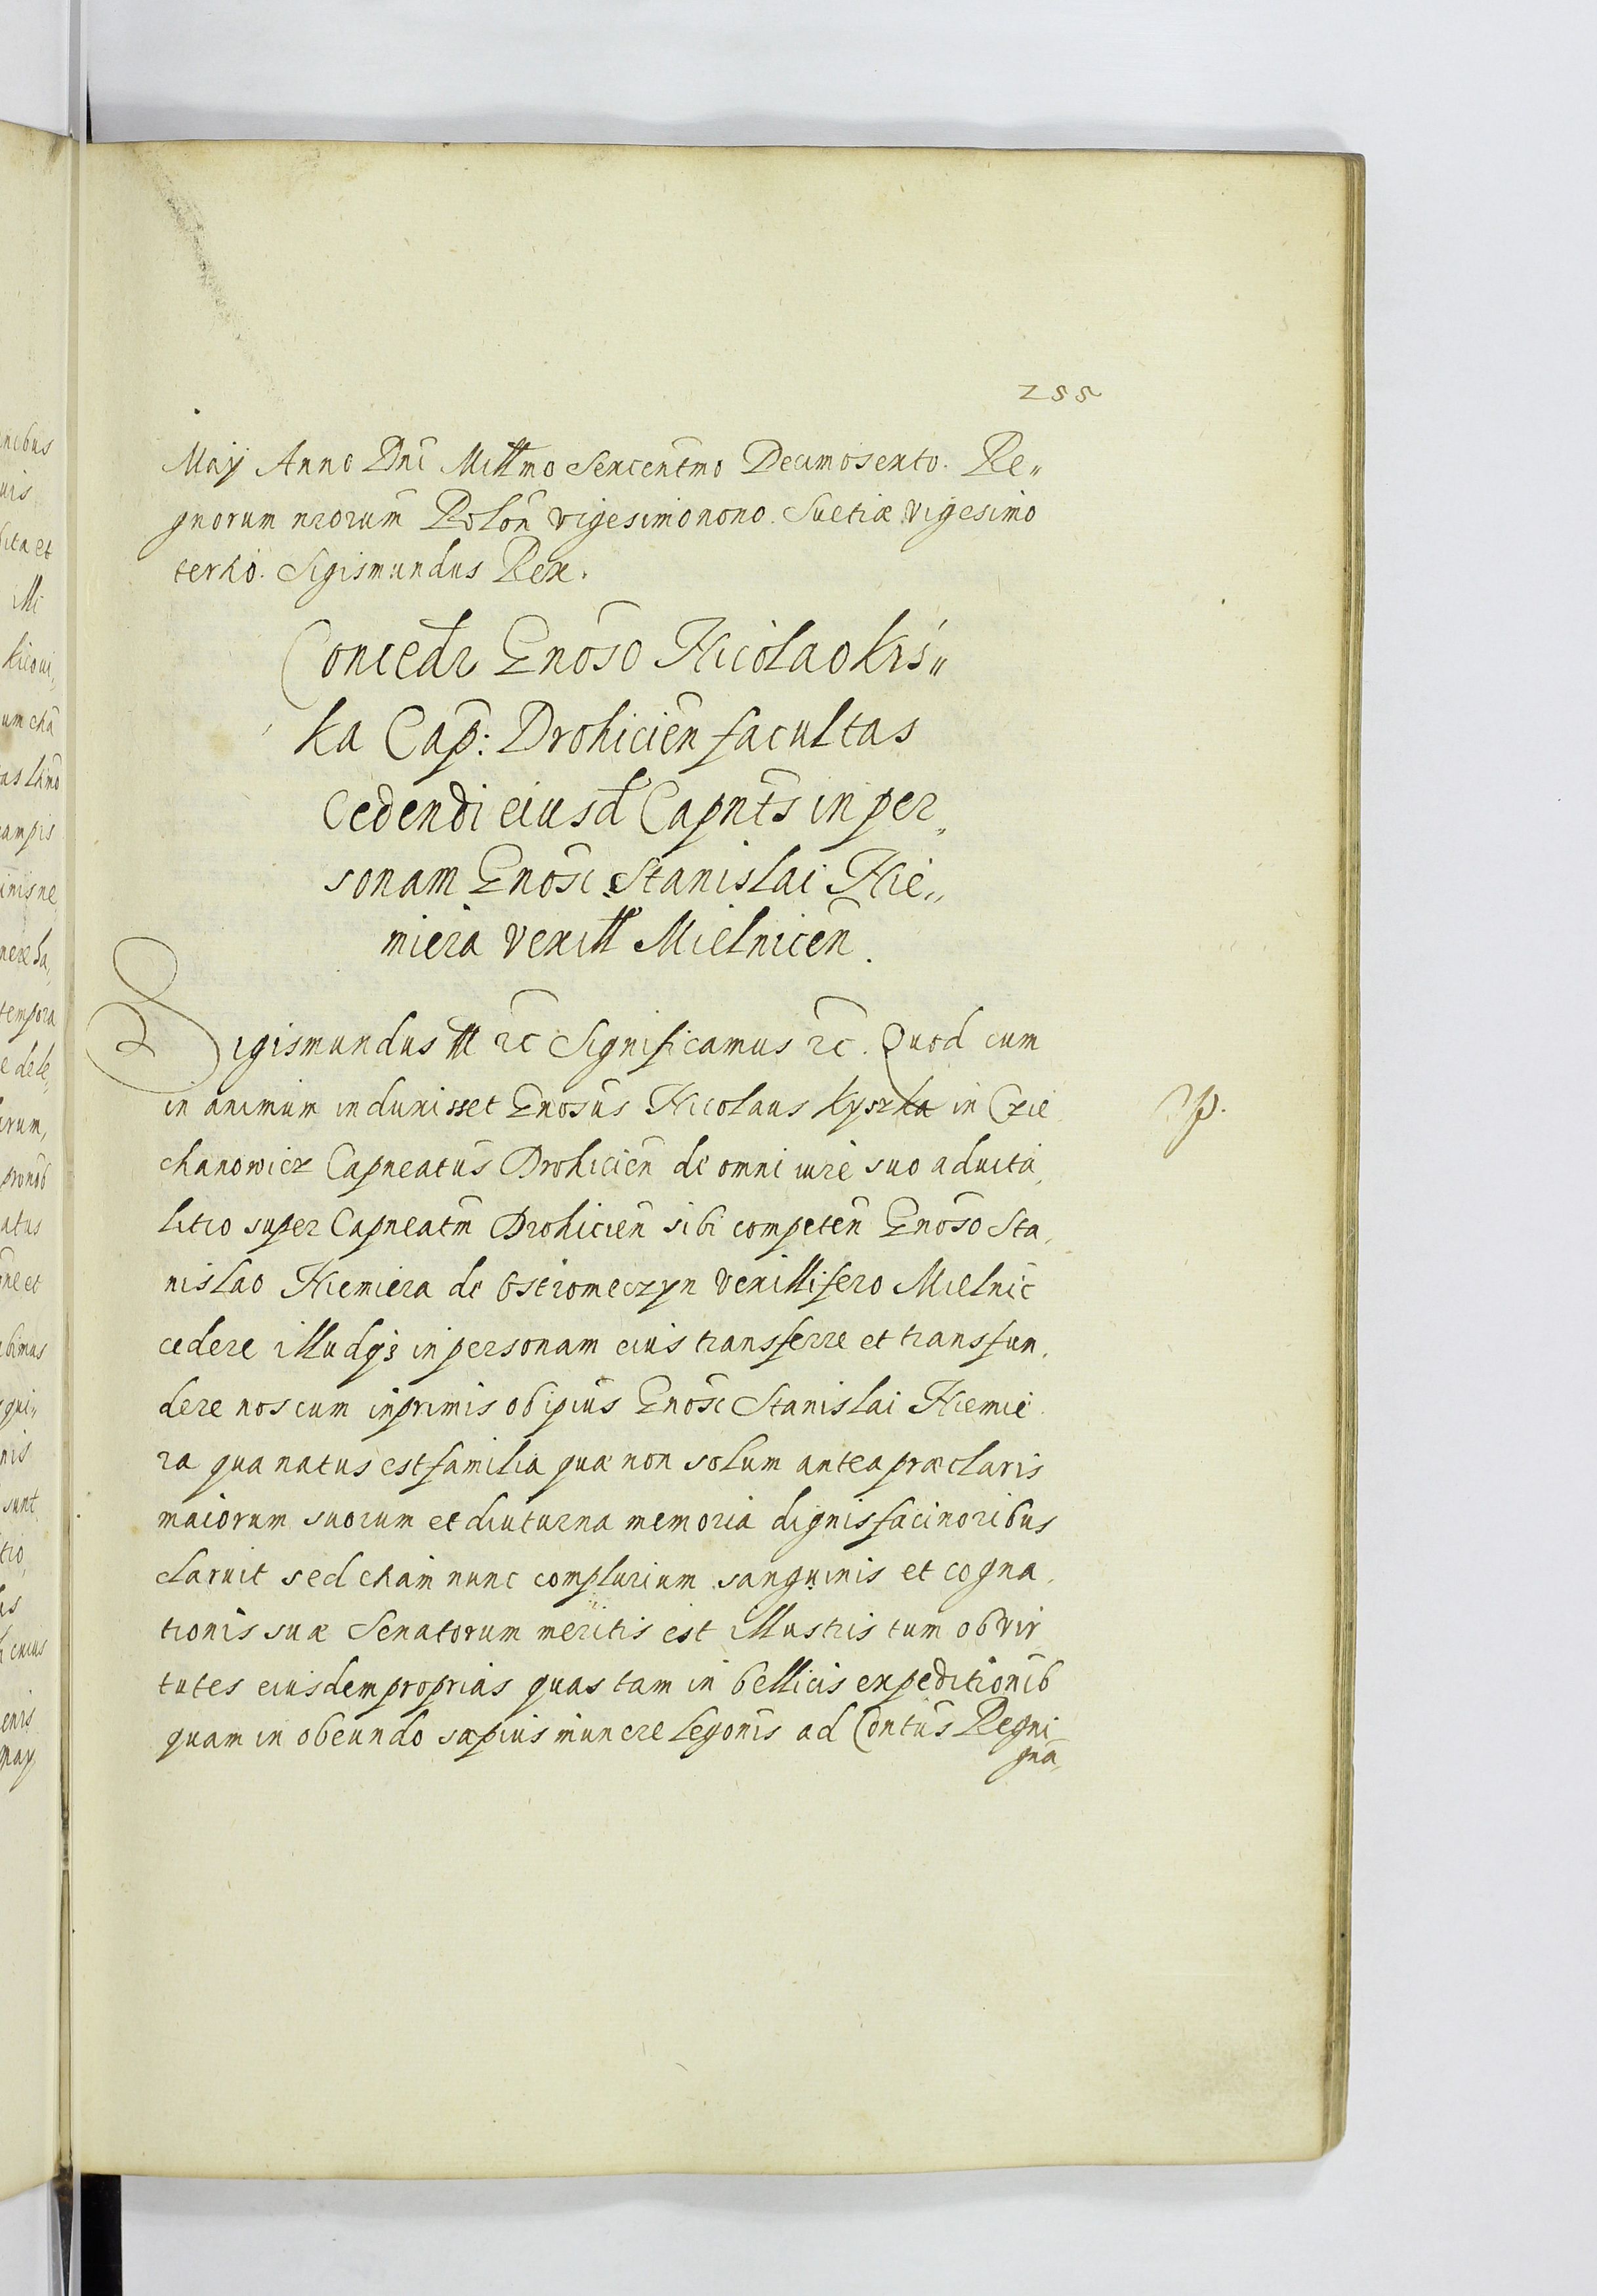 255
Maij Anno Dni Millmo Sexcentmo Decimosexto. Re„
gnorum nrorum Polon vigesimonono. Suetiæ vigesimo
tertio. Sigismundus Rex.
Concedr Gnoso Nicolao Kis„
ka Cap: Drohicien facultas
Cedendi eiusd Capnts in per„
sonam Gnosi Stanislai Nie„
miera Vexill Mielnicen.
Sigismundus III rc Significamus rc. Quod cum
in animum induxisset Gnosus Nicolaus Kyszka in Czie
chanowicz Capneatus Drohicien de omni iure suo aduita,
litio super Capneatm Drohicien sibi competen Gnoso Sta,
nislao Niemiera de Ostromeczyn Vexillifero Mielnic
cedere illudq; in personam eius transferre et transfun,
dere nos cum inprimis ob ipius Gnosi Stanislai Niemie
ra qua natus est familia quæ non solum antea præclaris
maiorum suorum et diuturna memoria dignis facinoribus
claruit sed etiam nunc complurium sanguinis et cogna,
tionis suæ Senatorum meritis est illustris tum ob vir
tutes eiusdem proprias quas tam in bellicis expeditionib
quam in obeundo sæpius munere legonis ad Contus Regni
gna,